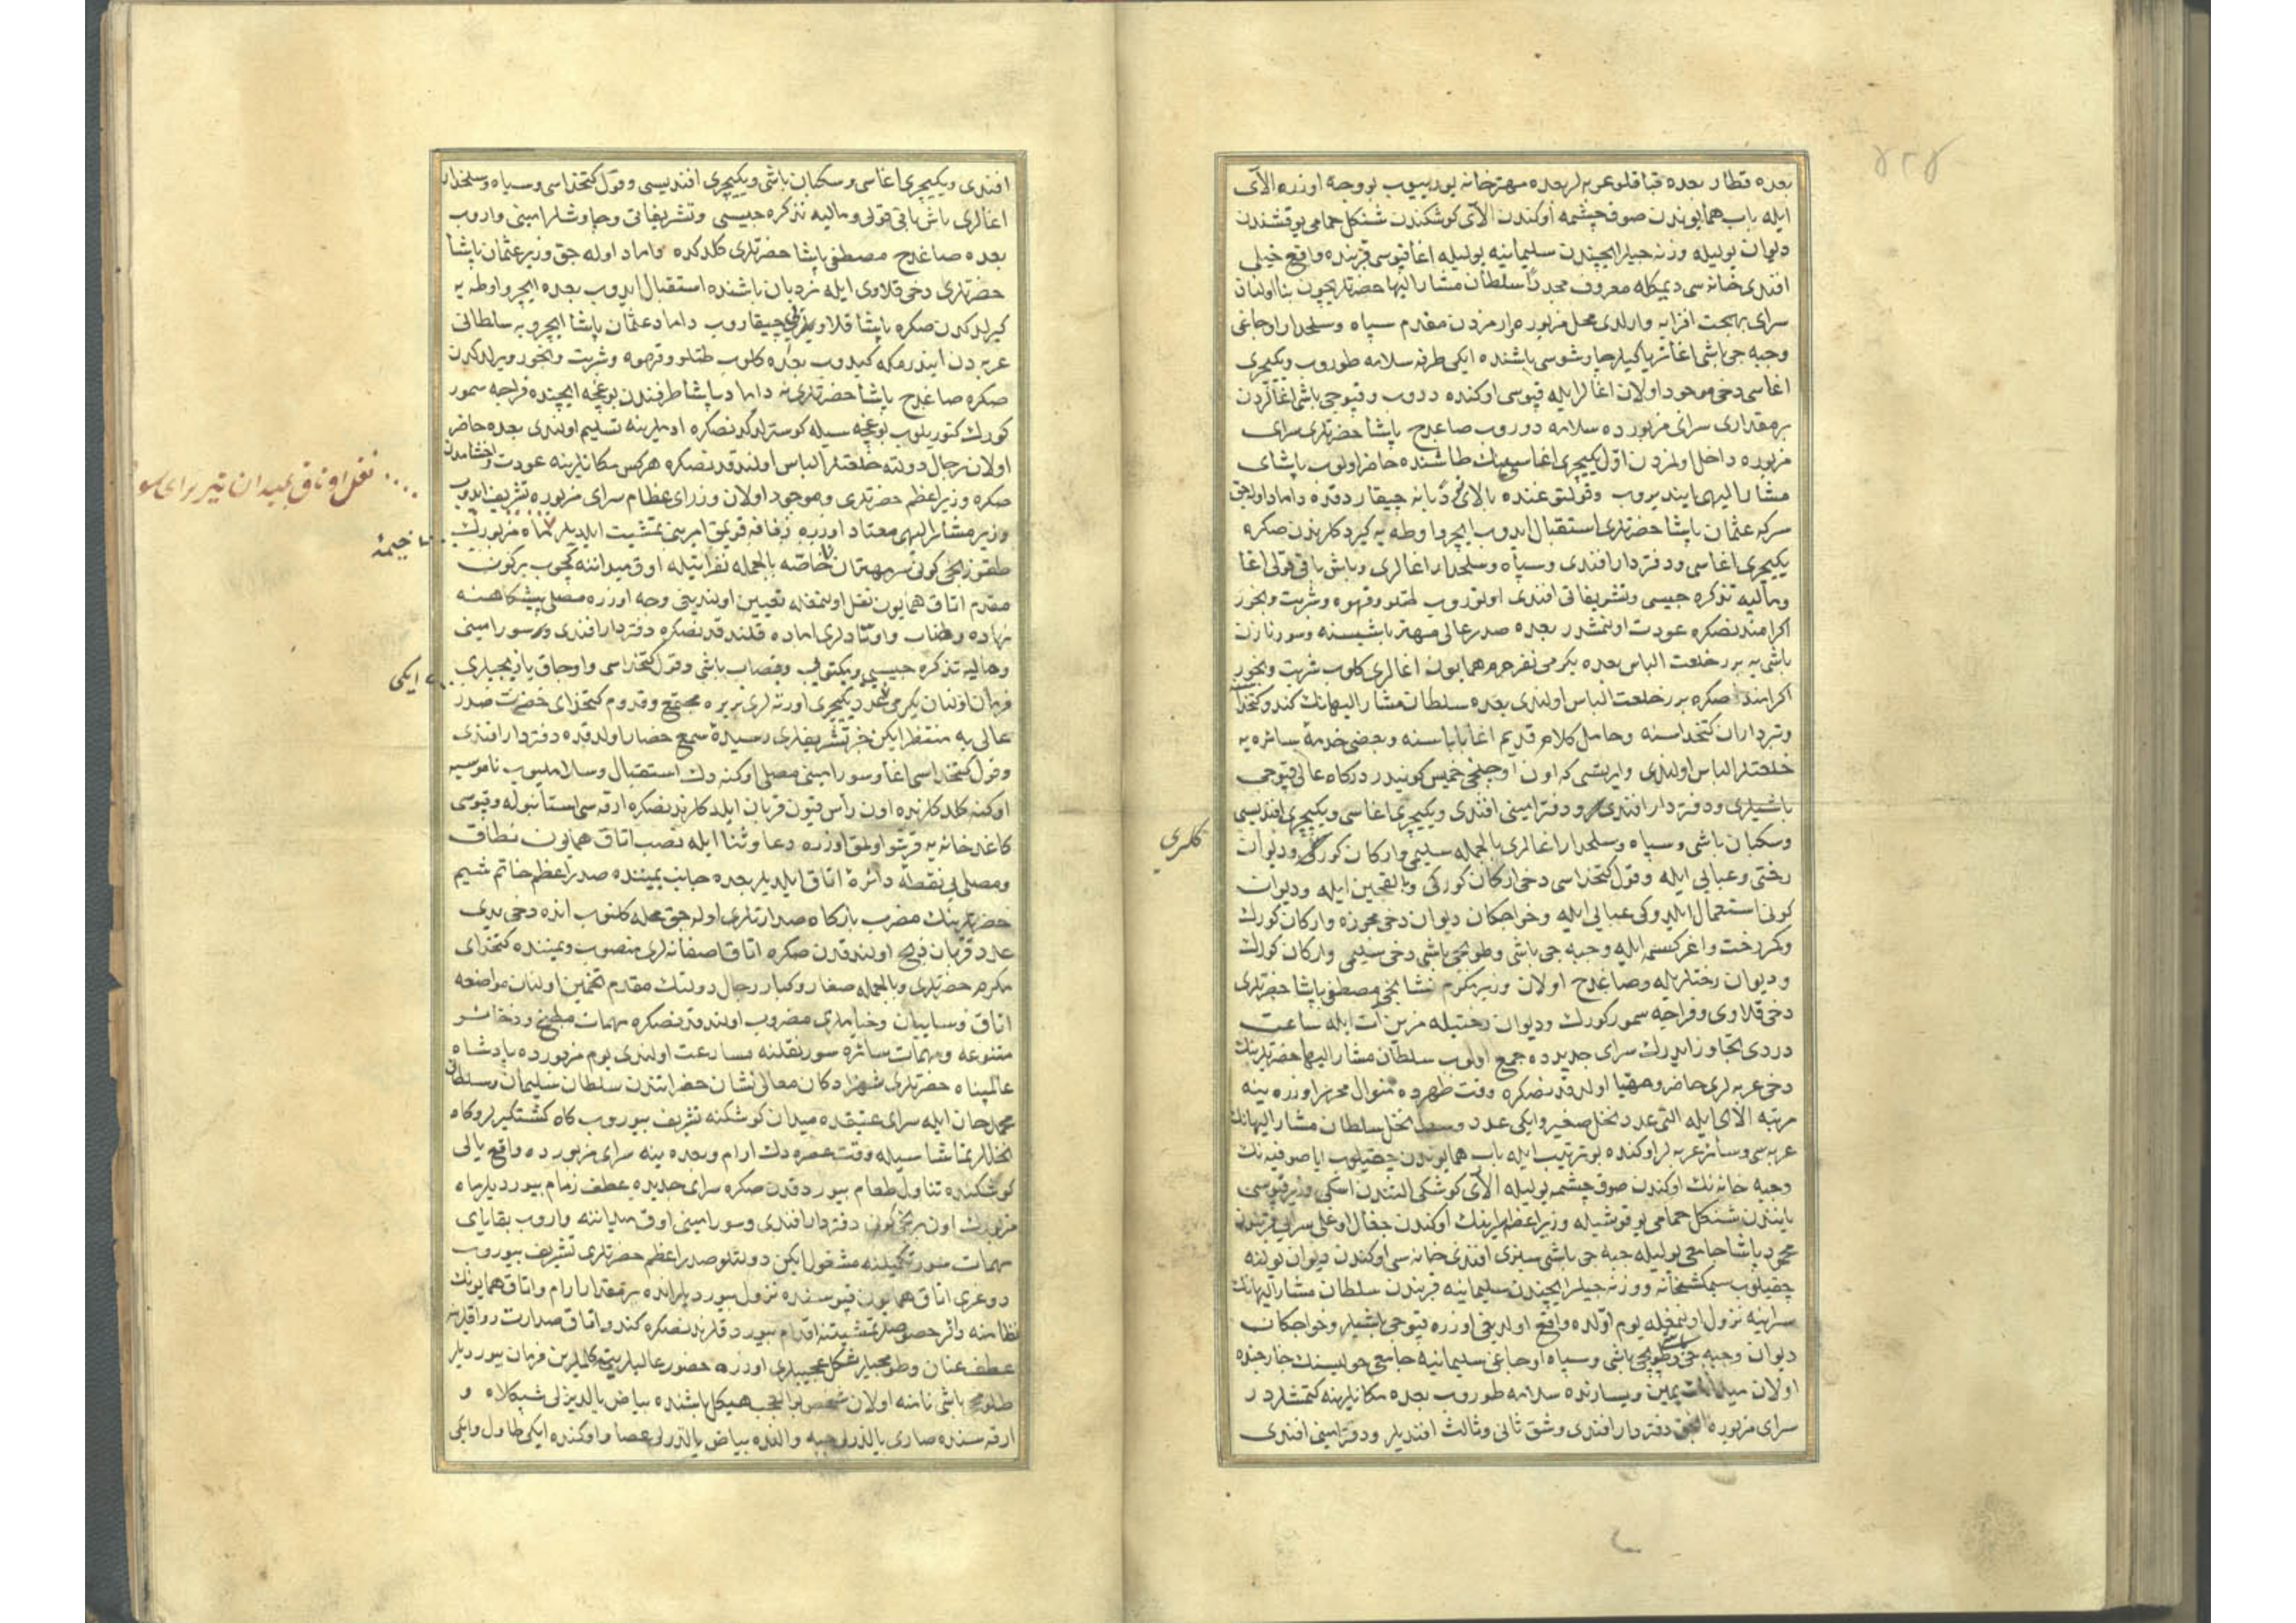 ۲۲۴
بعده قطار بعده قپاقلو عربه لر بعده مهترخانه یورییوب بو وجه اوزره آلای
ایله باب همایوندن صوغ چشمه اوکندن آلای کوشکندن شنکل حمامی یوقشندن
دیوان یولیله وزنه جیلر ایچندن سلیمانیه یولیله اغا قپوسی قربنده واقع
افندی خانه سی دیمکله معروف مجددا سلطان مشار الیها حضرتلریچون بنا اولنان
سرای بهجت افزایه وارلدی محل مزبوره مقدم سپاه وسلحدار اوجاغی
وجبه جی باشی باشنده ایکی طرفه سلامه طوروب ویکیچری
اغاسی دخی موجود اولان اغالر ایله قپوسی اوکنده دروب وقپوجی باشی اغالردن
بر مقداری سرای مزبورده سلامه دوروب صاغدج پاشا حضرتلری سرای
مزبوره داخل اولمزدن اول یکیچری اغاسی طاشنده حاضر اولوب پاشای
مشار الیهی ایندیروب وقولتوغنده بالای نردبانه چیقاردقده داماد اوله جق
سرکه عثمان پاشا حضرتلری استقبال ایدوب ایچرو اوطه یه کیردکلرندن صکره
یکیچری اغاسی ودفتردار افندی وسپاه وسلحدار اغالری وباش باقی قولی اغا
ومالیه تذکره جیسی وتشریفاتی افندی اوتوروب طتلو وقهوه وشربت وبخور
اکرامندنصکره عودت اولنمشدر بعده صدر عالی مهتر باشیسنه وسورنازن
باشی یه برر خلعت الباس بعده یکرمی نفر حرم همایون اغالری کلوب شربت وبخور
اکرامندن صکره برر خلعت الباس اولندی بعده سلطان مشار الیهانک کندو کتخدا
وتبرداران کتخداسنه وحامل کلام قدیم اغا باباسنه وبعضی خدمهٔ سائره یه
خلعتلر الباس اولندی وایرتسی که اون اوچنجی خمیس کونیدر درکاه عالی قپوجی
باشیلری ودفتردار افندی ودفتر امینی افندی ویکیچری اغاسی ویکیچری افندیسی
وسکبان باشی وسپاه وسلحدار اغالری بالجمله سلیمی وارکان کورک ودیوان
کلری
رختی وعبایی ایله وقول کتخداسی دخی ارکان کورکی وبالقجین ایله ودیوان
کونی استعمال ایلدوکی عبایی ایله وخواجکان دیوان دخی مجوزه وارکان کورک
رخت ایله وجبه جی باشی وطوپجی باشی دخی سلیمی وارکان کورک
ودیوان رختلریله وصاغدج اولان وزیر مکرم نشانجی مصطفی پاشا حضرتلری
دخی قلاوی وفراجه سمور کورک ودیوان رختیله مزین آت ایله ساعت
دردی تجاوز ایدرک سرای جدیده جمع اولوب سلطان مشار الیها حضرتلرینک
دخی عربه لری حاضر ومهیا اولدقدنصکره وقت ظهرده منوال محرر اوزره ینه
مرتبه آلای ایله التی عدد نخل صغیر وایکی عدد وسط نخل سلطان مشار الیهانک
عربه سی وسائر عربه لر اوکنده بو ترتیب ایله باب همایوندن چیقیلوب ایاصوفیه نک
وجبه خانه نک اوکندن صوغ چشمه یولیله آلای کوشکی التندن اسکی وزیر قپوسی
یانندن شنکل حمامی یوقوشیله وزیر اعظم سراینک اوکندن جغال اوغلی سرایی قربندن
محمود پاشا جامعی یولیله جبه جی باشی سبزی افندی خانه سی اوکندن دیوان یولنه
چیقیلوب سیمکشخانه ووزنه جیلر ایچندن سلیمانیه قربندن سلطان مشار الیهانک
سراینه نزول اولنمغله یوم اولده واقع اولدیغی اوزره قپوجی باشیلر وخواجکان
دیوان وجبه جی وطوپجی باشی وسپاه اوجاغی سلیمانیه جامعی حولیسنک خارجنده
اولان میدانک یمین ویسارنده سلامه طوروب بعده مکانلرینه کتمشلردر
سرای مزبوره دفتردار افندی وشق ثانی وثالث افندیلر ودفتر امینی افندی
افندی ویکیچری اغاسی وسکبان باشی ویکیچری افندیسی وقول کتخداسی وسپاه وسلحدار
اغالری باش باقی قولی ومالیه تذکره جیسی وتشریفاتی وچاوشلر امینی واروب
بعده صاغدج مصطفی پاشا حضرتلری کلدکده داماد اوله جق وزیر عثمان پاشا
حضرتلری دخی قلاوی ایله نردبان باشنده استقبال ایدوب بعده ایچرو اوطه یه
کیرلدکدن صکره پاشا قلاویلرین چیقاروب داماد عثمان پاشا ایچرویه سلطانی
عربه دن ایندرمکه کیدوب بعده کلوب طتلو وقهوه وشربت وبخور ویرلدکدن
صکره صاغدج پاشا حضرتلرینه داماد پاشا طرفندن بوغچه ایچنده فراجه سمور
کورک کتوریلوب بوغچه سیله کوسترلدکدنصکره ادملرینه تسلیم اولندی بعده حاضر
اولان رجال دولته خلعتلر الباس اولندقدنصکره هرکس مکانلرینه عودت واخشامدن
صکره وزیر اعظم حضرتلری وموجود اولان وزرای عظام سرای مزبوره تشریف ایدوب
نقل اوتاق بمیدان تیر برای سور
وزیر مشار الیهی معتاد اوزره زفافه قویمق امرینی تمشیت ایلدیلر ماه مزبورک
خیمهٔ
طقوزنجی کونی سر مهتران خاصه بالجمله نفراتیله اوق میداننه کچوب برکون
مقدم اتاق همایون نقل اولنمغله تعیین اولندیغی وجه اوزره مصلی پیشکاهنه
نهاده وطناب واوتادلری اماده قلندقدنصکره دفتردار افندی وسور امینی
ومالیه تذکره جیسی وبکتوبی وقصاب باشی وقول کتخداسی واوجاق یازیجیلری
ایکی
فرمان اولنان یکرمی عدد یکیچری اورته لری بر یره مجتمع وقدوم کتخدای حضرت صدر
عالی یه منتظر ایکن خبر تشریفلری رسیدهٔ سمع حضار اولدقده دفتردار افندی
وقول کتخداسی اغا وسور امینی مصلی اوکنه دک استقبال وسلاملیوب ناموسیه
اوکنه کلدکلرنده اون رأس قیون قربان ایلدکلرندنصکره ارقه سی استانبوله وقپوسی
کاغدخانه یه قرشو اولمق اوزره دعا وثنا ایله نصب اتاق همایون نطاق
ومصلی یی نقطهٔ دائرهٔ اتاق ایلدیلر بعده جانب یمیننده صدر اعظم خاتم شیم
حضرتلرینک مضرب بارکاه صدارتلری اوله جق محله کلنوب انده دخی یدی
عدد قربان ذبح اولندقدن صکره اتاق اصفانه لری منصوب ویمیننده کتخدای
مکرم حضرتلری وبالجمله صغار وکبار رجال دولتک مقدم تخمین اولنان مواضعه
اتاق وسایبان وخیاملری مضروب اولندقدنصکره مهمات مطبخ وذخائر
متنوعه ومهمات سائره سور نقلنه مسارعت اولندی یوم مزبورده پادشاه
عالمپناه حضرتلری شهزادکان معالی نشان حضراتندن سلطان سلیمان وسلطان
محمد خان ایله سرای عتیقده میدان کوشکنه تشریف بیوروب کاه کشتیکیر لر وکاه
نخللر تماشاسیله وقت عصره دک ارام وبعده ینه سرای مزبورده واقع یالی
کوشکنده تناول طعام بیوردقدن صکره سرای جدیده عطف زمام بیوردیلر ماه
مزبورک اون برنجی کونی دفتردار افندی وسور امینی اوق میداننه واروب بقایای
مهمات سور تکمیلنه مشغول ایکن دولتلو صدر اعظم حضرتلری تشریف بیوروب
دوغری اتاق همایون قپوسنده نزول بیوردیلر انده بر مقدار ارام واتاق همایونک
نظامنه دائر خصوصلر تمشیتنه اقدام بیوردقلرندنصکره کندو اتاق صدارت رواقلرینه
عطف عنان وطولمجیلر شکل عجیبلری اوزره حضور عالیلرینه کلملرین فرمان بیوردیلر
طلومجی باشی نامنه اولان شخص بو العجب هیکل باشنده بیاض یالدیزلی شبکلاه و
ارقه سنده صاری یالدزلی جبه والنده بیاض یالدزلی عصا واوکنده ایکی طاول وایکی